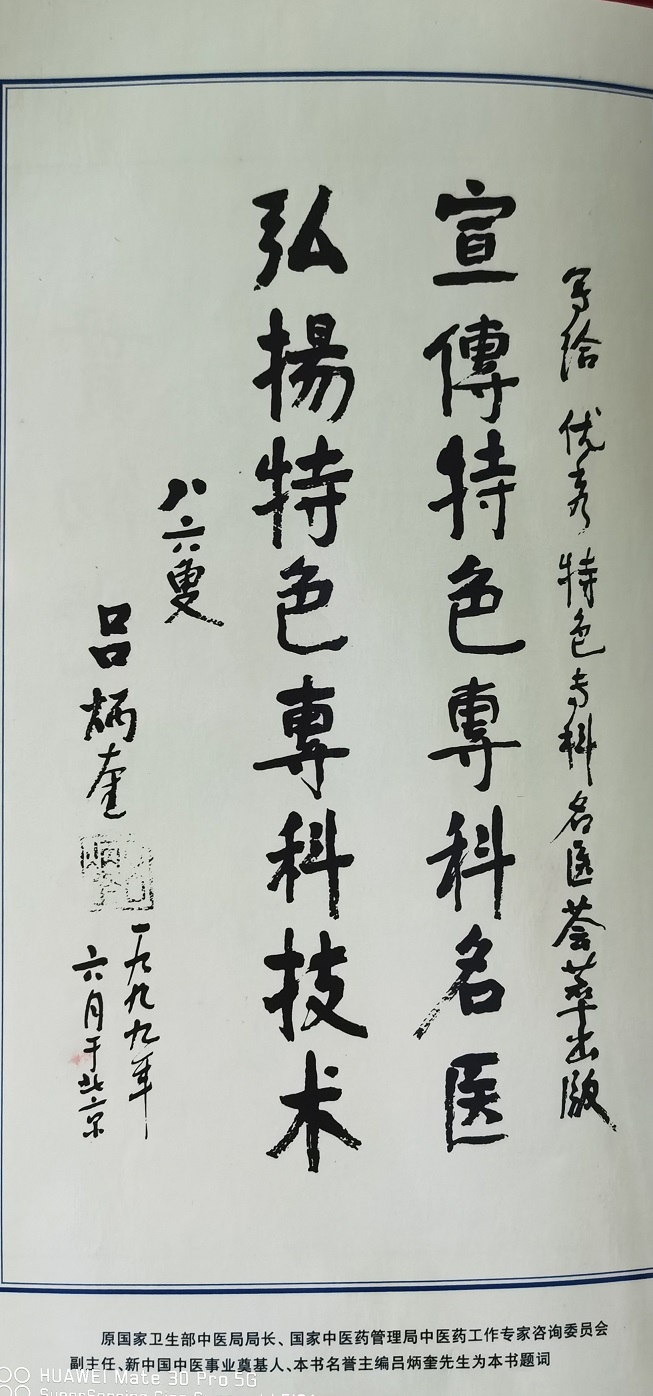 写给优秀特色专科名医荟萃出版
宣傳特色專科名医
弘揚特色專科技术
八六叟
吕炳奎
一九九九年
六月于北京
原国家卫生部中医局局长、国家中医药管理局中医药工作专家咨询委员会
副主任、新中国中医事业奠基人、本书名誉主编吕炳奎先生为本书题词
HUAWEI Mate 30 Pro 5G